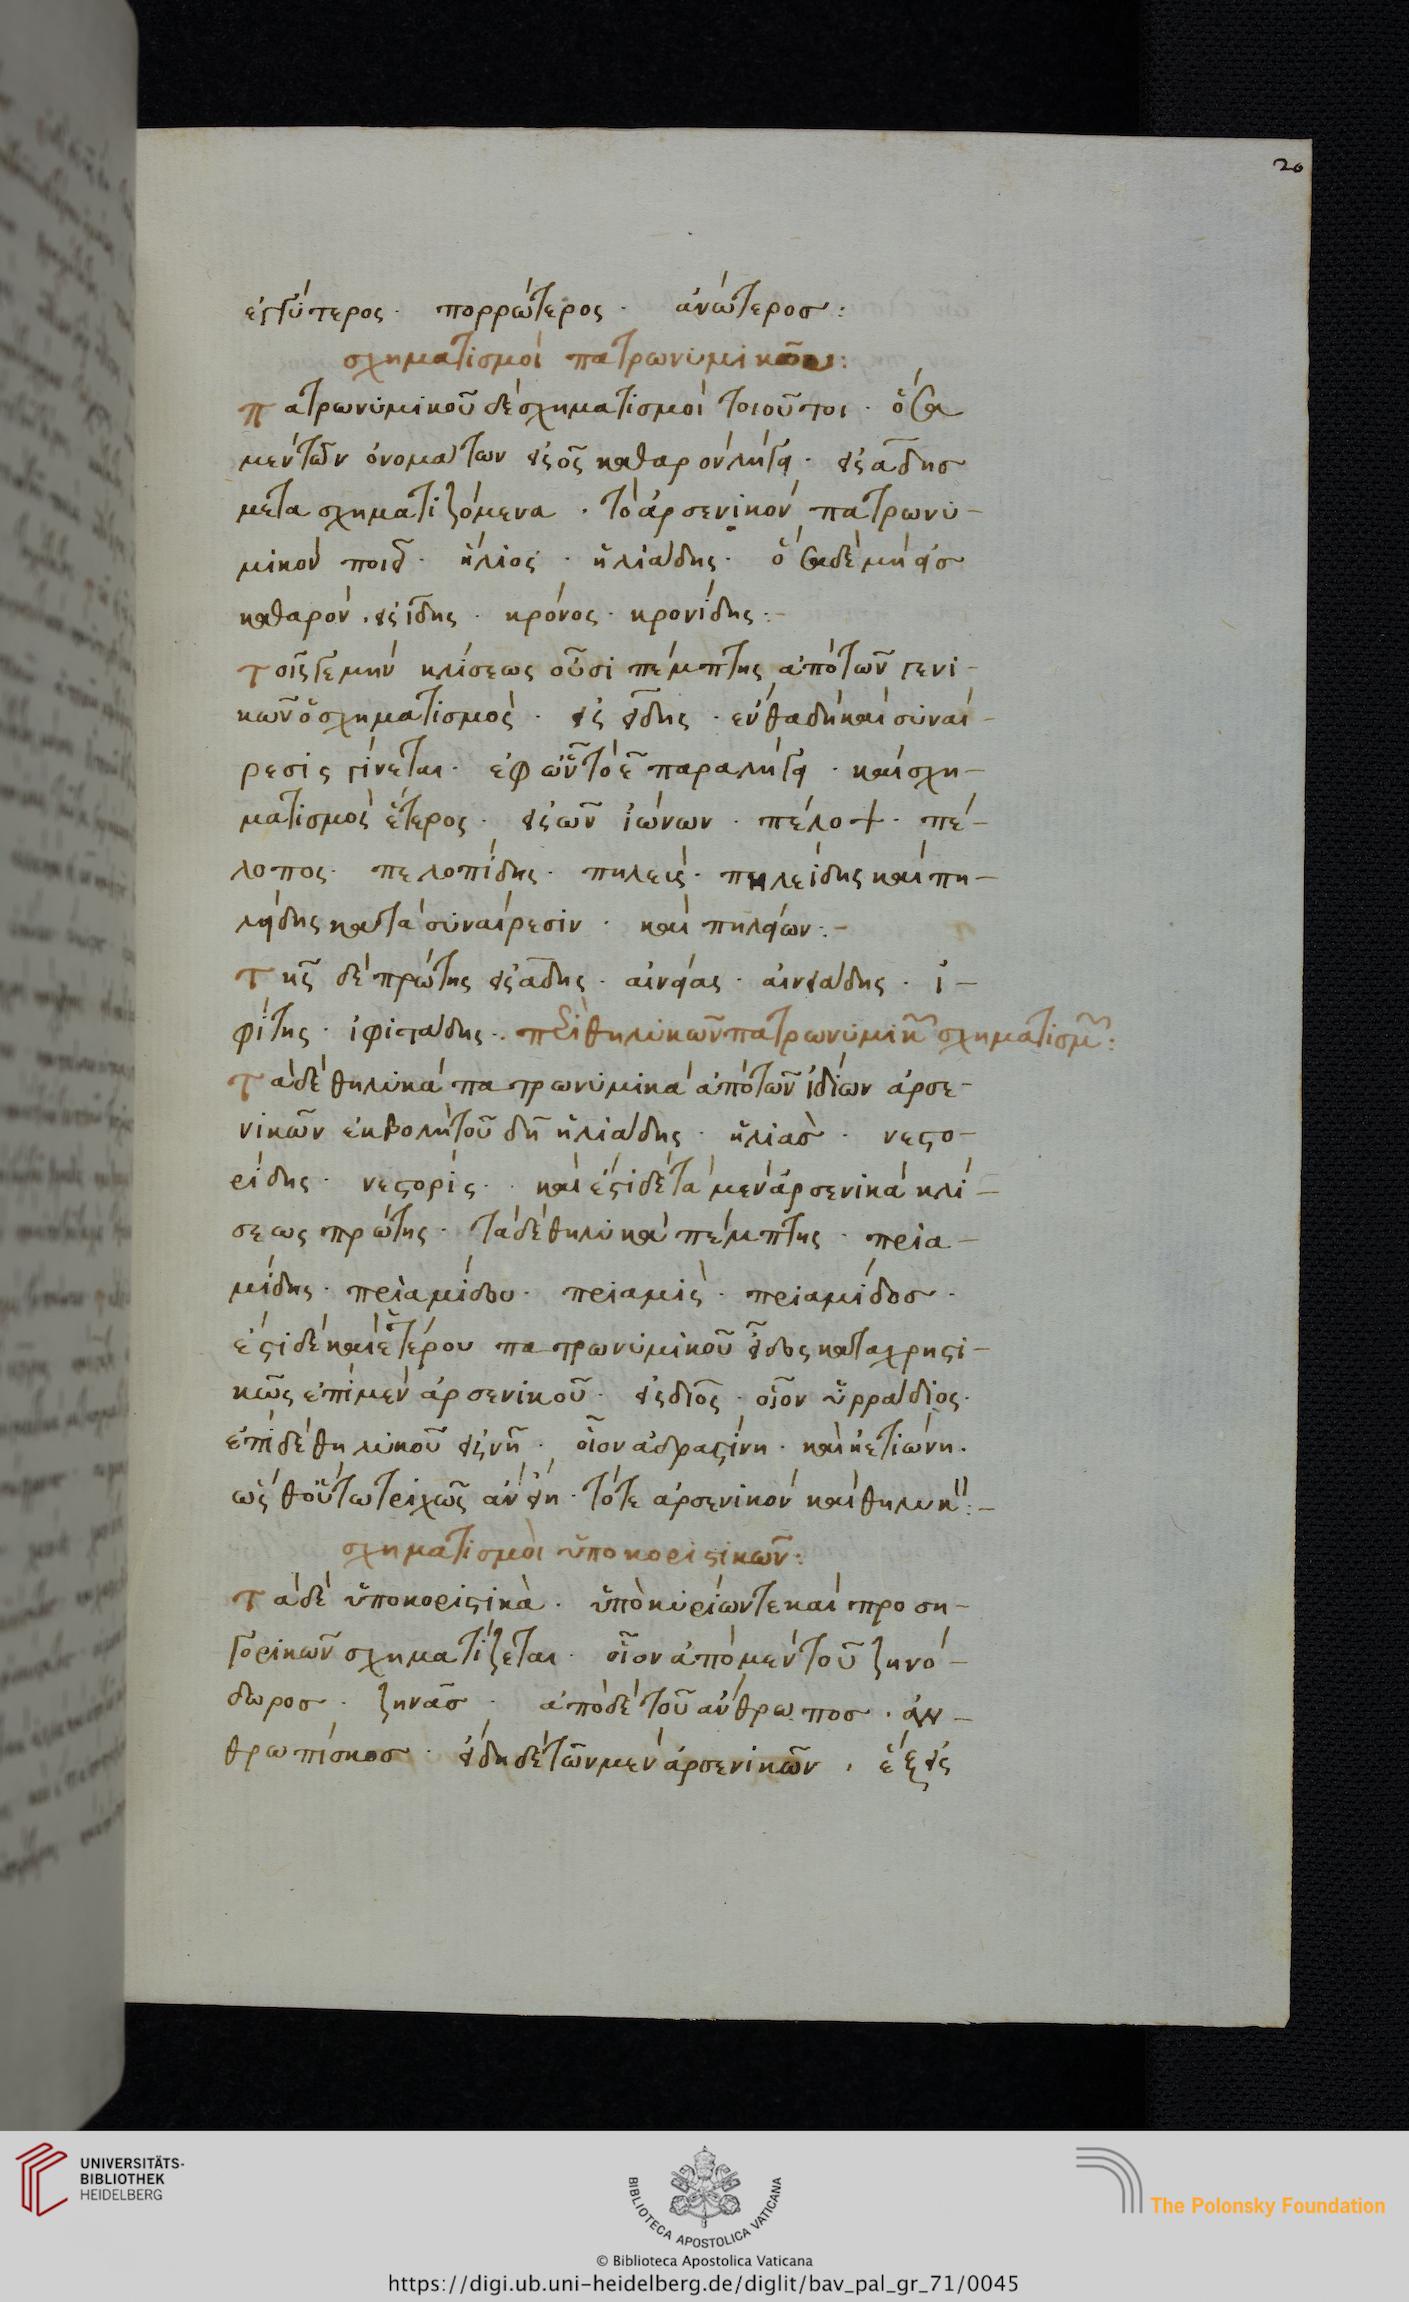 20
ἐγγύτερος· πορρώτερος· ἀνώτερος:
σχηματισμοὶ πατρωνυμικῶν:
Πατρωνυμικοῦ δὲ σχηματισμοὶ τοιοῦτοι· ὅσα
μὲν τῶν ὀνομάτων εἰς ος καθαρὸν λήγει· εἰς αδης
μετασχηματιζόμενα· τὸ ἀρσενικὸν πατρωνυ-
μικὸν ποιεῖ· ἥλιος· ἡλιάδης· ὅσα δὲ μὴ εἰς
καθαρόν· εἰς ιδης· κρόνος· κρονίδης:-
τοῖς γε μὴν κλίσεως οὖσι πέμπτης ἀπὸ τῶν γενι-
κῶν ὁ σχηματισμός· εἰς ειδης· ἔνθα δὴ καὶ συναί-
ρεσις γίνεται· ἐφ ὧν τὸ ε παραλήγει· καὶ σχη-
ματισμὸς ἕτερος· εἰς ων ἰώνων· πέλοψ· πέ-
λοπος· πελοπίδης· πηλεύς· πηλείδης καὶ πη-
λείδης κατὰ συναίρεσιν· καὶ πηλείων:-
τῆς δὲ πρώτης εἰς αδης· αἰνείας· αἰνειάδης· ἰ-
φίτης· ἰφιτάδης· περὶ θηλυκῶν πατρωνυμικῶν σχηματισμ:
Τὰ δὲ θηλυκὰ πατρωνυμικὰ ἀπὸ τῶν ἰδίων ἀρσε-
νικῶν ἐκβολῇ τοῦ δη ἡλιάδης· ἡλιάς· νεστο-
ρίδης· νεστορίς· καὶ ἔστι δὲ τὰ μὲν ἀρσενικὰ κλί-
σεως πρώτης· τὰ δὲ θηλυκὰ πέμπτης· πρια-
μίδης· πριαμίδου· πριαμίς· πριαμίδος·
ἔστι δὲ καὶ ἑτέρου πατρωνυμικοῦ εἶδος καταχρηστι-
κῶς ἐπὶ μὲν ἀρσενικοῦ· εἰς διος· οἷον ὑρράδιος·
ἐπὶ δὲ θηλυκοῦ εἰς νη· οἷον ἀδραστίνη· καὶ ἠετιώνη·
ὥσθ οὕτω τριχῶς ἂν εἴη· τό τε ἀρσενικὸν καὶ θηλυκ:-
σχηματισμοὶ ὑποκοριστικῶν:
Τὰ δὲ ὑποκοριστικὰ· ὑπὸ κυρίων τε καὶ προση-
γορικῶν σχηματίζεται· οἷον ἀπὸ μὲν τοῦ ζηνό-
δωρος· ζηνᾶς· ἀπὸ δὲ τοῦ ἄνθρωπος· ἀν-
θρωπίσκος· εἴδη δὲ τῶν μὲν ἀρσενικῶν· ἓξ εἰς
UNIVERSITÄTS-
BIBLIOTHEK
HEIDELBERG
BIBLIOTECA APOSTOLICA VATICANA
© Biblioteca Apostolica Vaticana
The Polonsky Foundation
https://digi.ub.uni-heidelberg.de/diglit/bav_pal_gr_71/0045